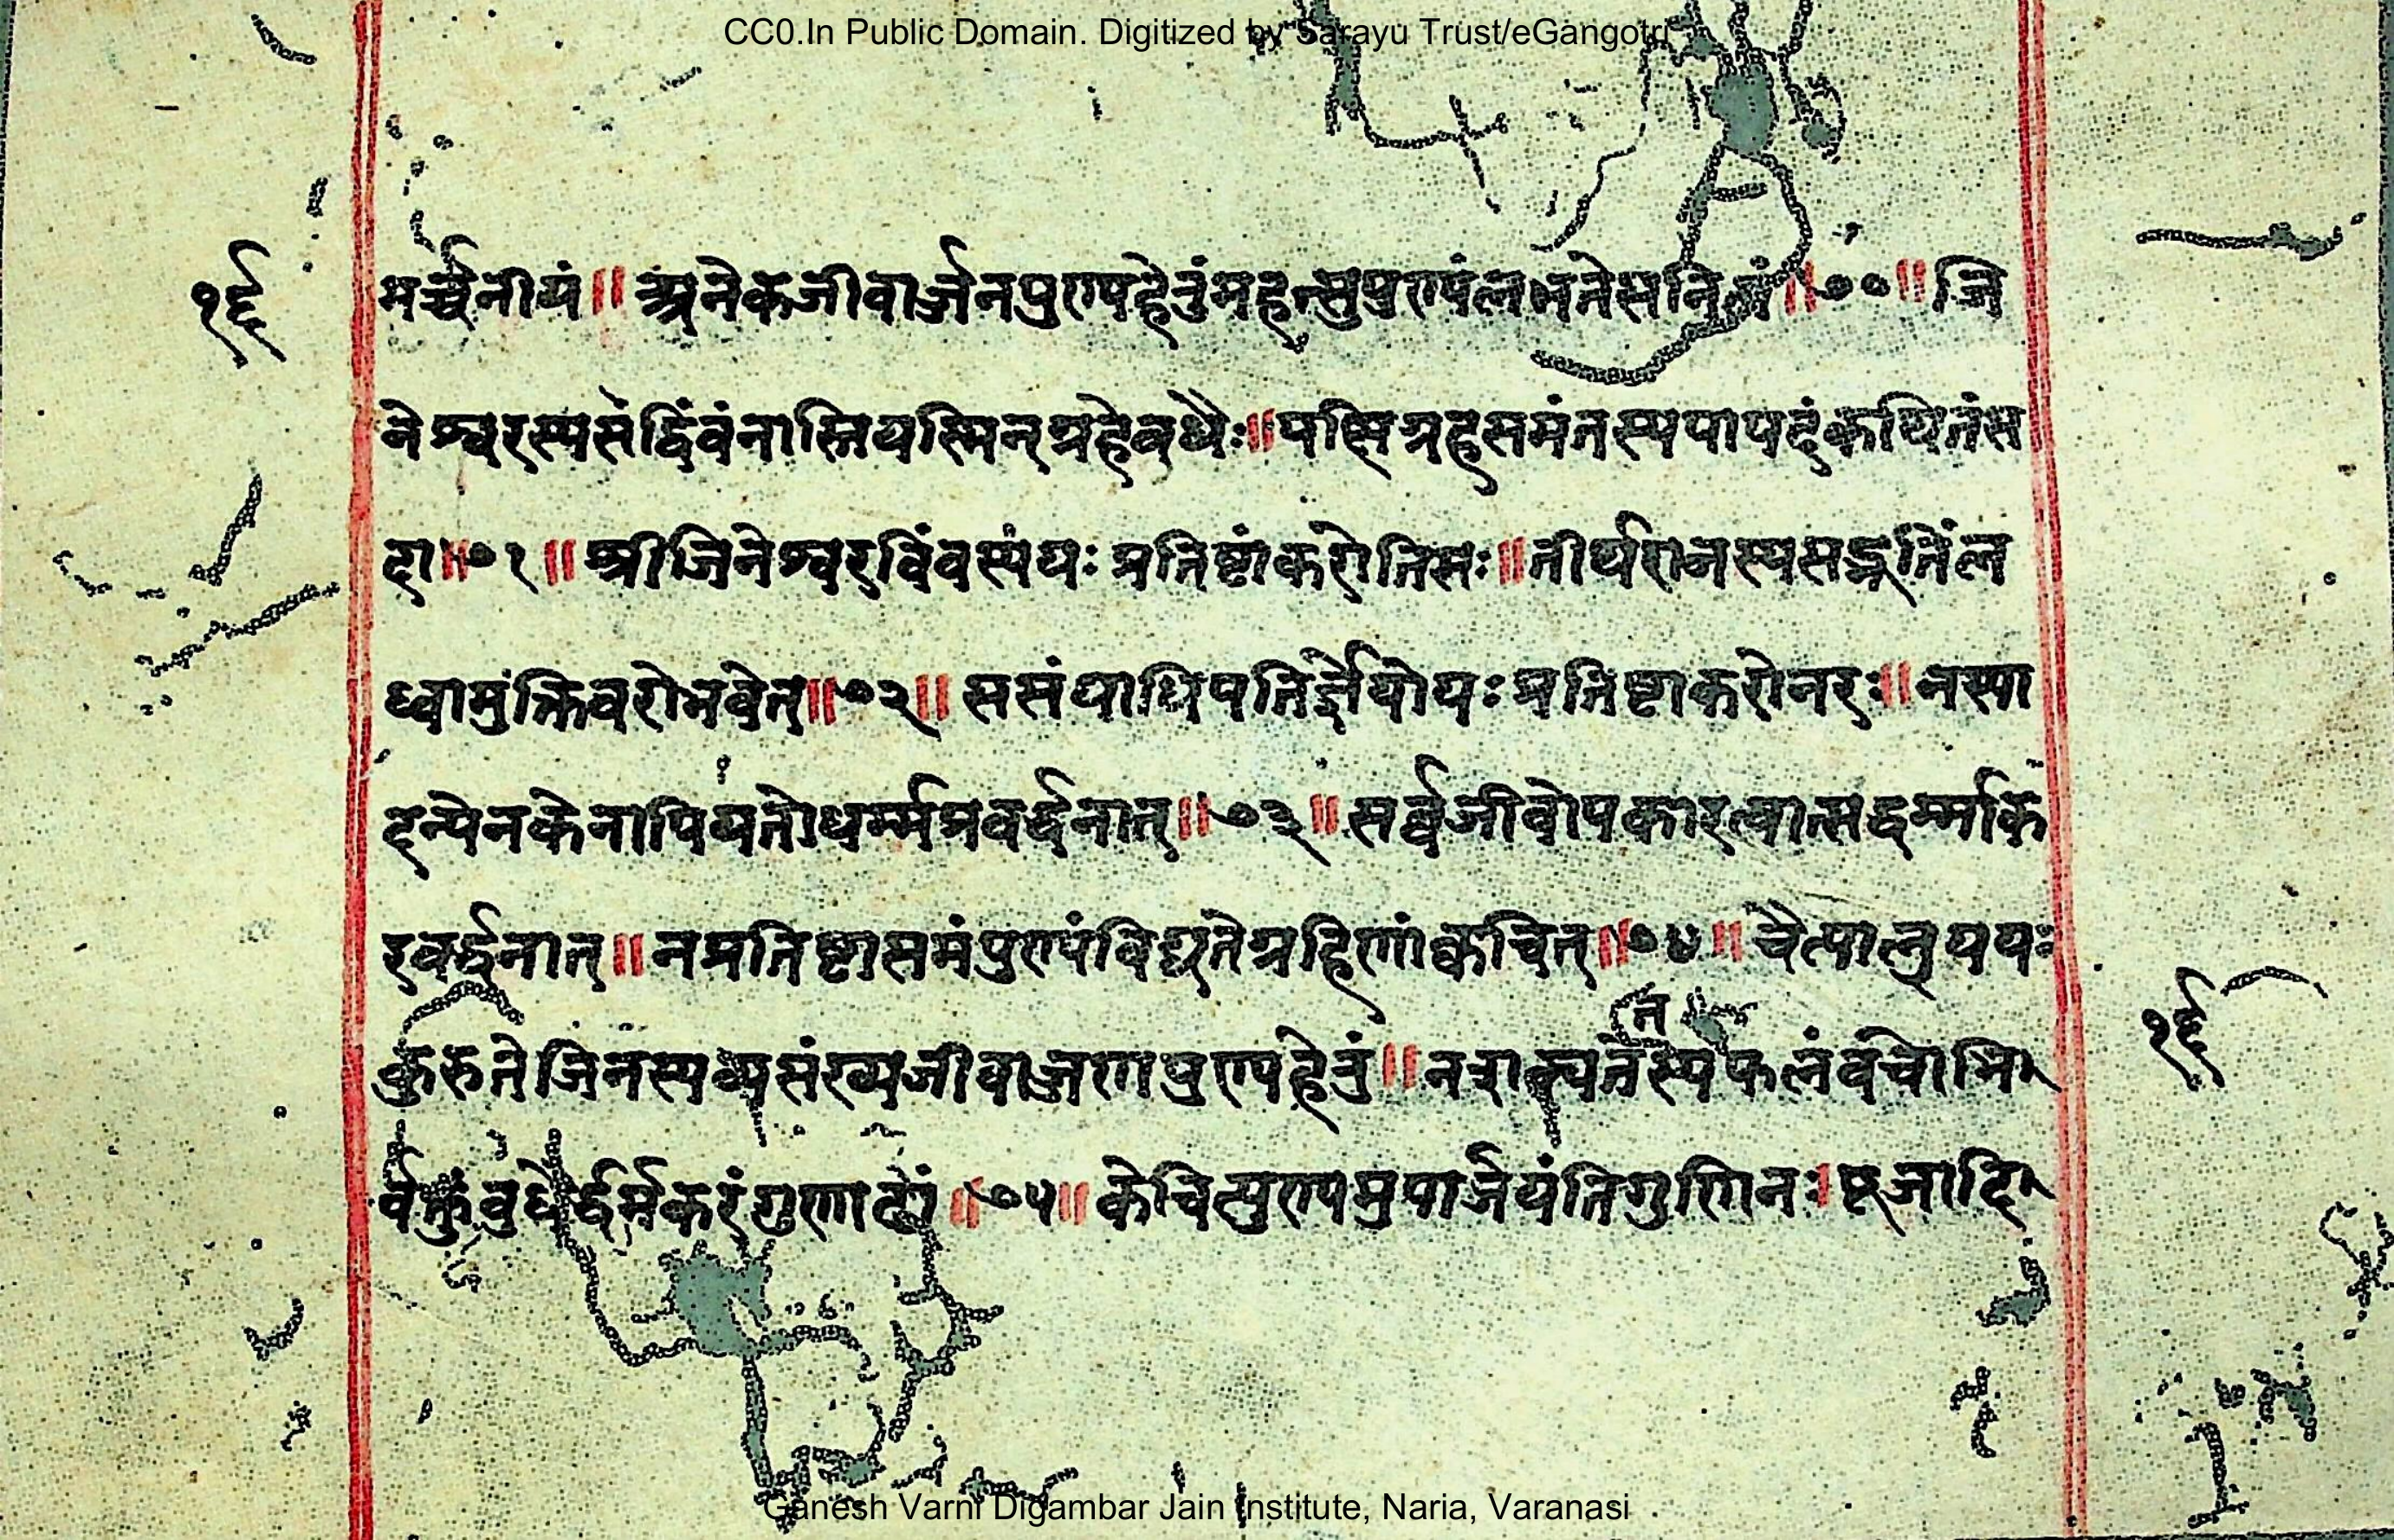 CC0.In Public Domain. Digitized by Sarayu Trust/eGangotri
१६
मर्च्चनीयं॥ अनेकजीवार्जनपुण्यहेतुं महत्सुपुण्यं लभतेसनित्यं॥७०॥जि
नेश्वरस्यसद्विंवंनास्तियस्मिन्ग्रहेवुधैः॥पक्षिग्रहसमंतस्यपापदंकथितंस
दा॥७१॥श्रीजिनेश्वरविंवस्ययः प्रतिष्टांकरोतिसः॥तीर्थराजस्यसद्भूतिंल
ध्वामुक्तिवरोभवेत्॥७२॥ससंघाधिपतिर्ज्ञेयोयः प्रतिष्टाकरोनरः॥नस्पा
दन्येनकेनापियतोधर्म्मप्रवर्द्धनात्॥७३॥सर्व्वजीवोपकारत्वात्सद्धर्म्मकि
रवर्द्धनात्॥नप्रतिष्टासमंपुण्यंविद्यतेग्रहिणांक्वचित्॥७४॥चैत्यालुययः
कुरुतेजिनस्यध्यसंख्यजीवाज्जणपुण्यहेतुं॥
त
फलंवचोभि
र्वक्तुंवुधैर्द्धर्मकरंगुणाढ्यं॥७५॥केचित्पुण्यमुपार्जयंतिगुणिनः।पूजादि
१६
Ganesh Varni Digambar Jain Institute, Naria, Varanasi